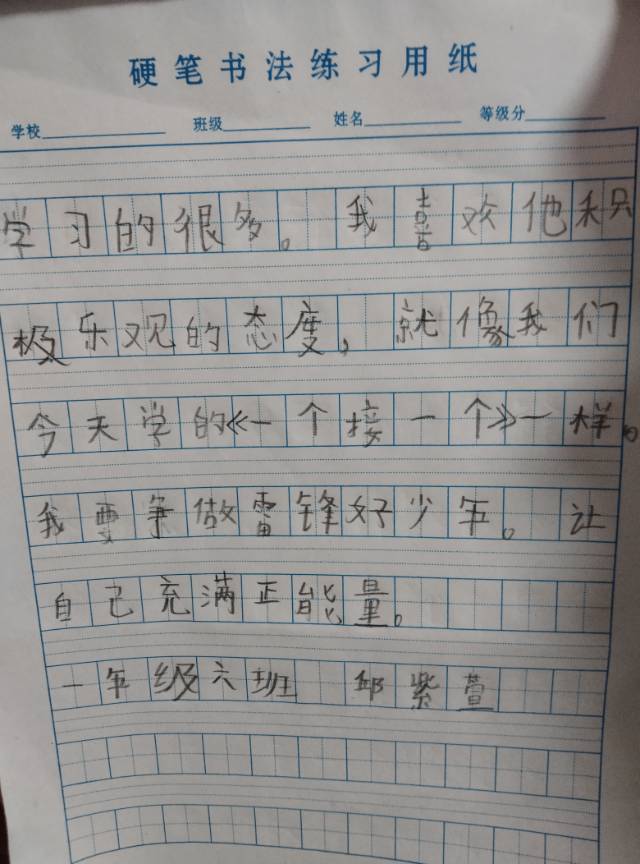 硬笔书法练习用纸
学校 班级 姓名 等级分
学习的很多。我喜欢他积
极乐观的态度，就像我们
今天学的《一个接一个》一样。
我要争做雷锋好少年。让
自己充满正能量。
一年级六班 邱紫萱